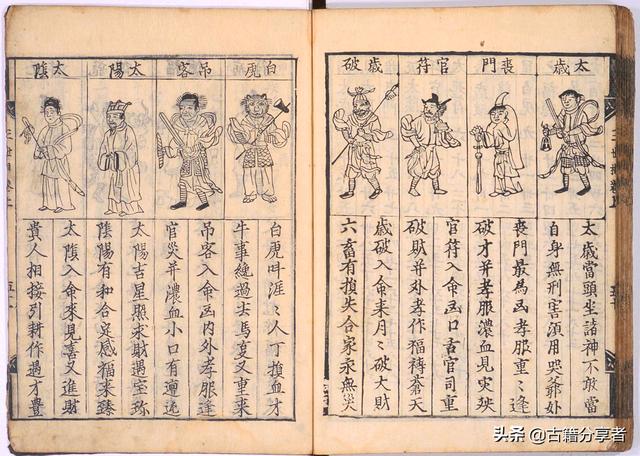 太歲
喪門
官符
歲破
太歲當頭坐諸神不敢當
自身無刑害須用哭爺娘
喪門最為凶孝服重〻逢
破才并孝服濃血見災殃
官符入命凶口舌官司重
破財并外孝作福禱蒼天
歲破入命來月〻破大財
六畜有損失合家永無災
白虎
吊客
太陽
太陰
白虎叫涯〻人丁損血才
牛事纏過去馬憂又重來
吊客入命凶內外孝服逢
官災并濃血小口有
太陽吉星照求財過宝珎
陰陽有和合定感福來臻
太陰入命來見喜又進財
貴人相接引耕作過才豊
头条 @古籍分享者